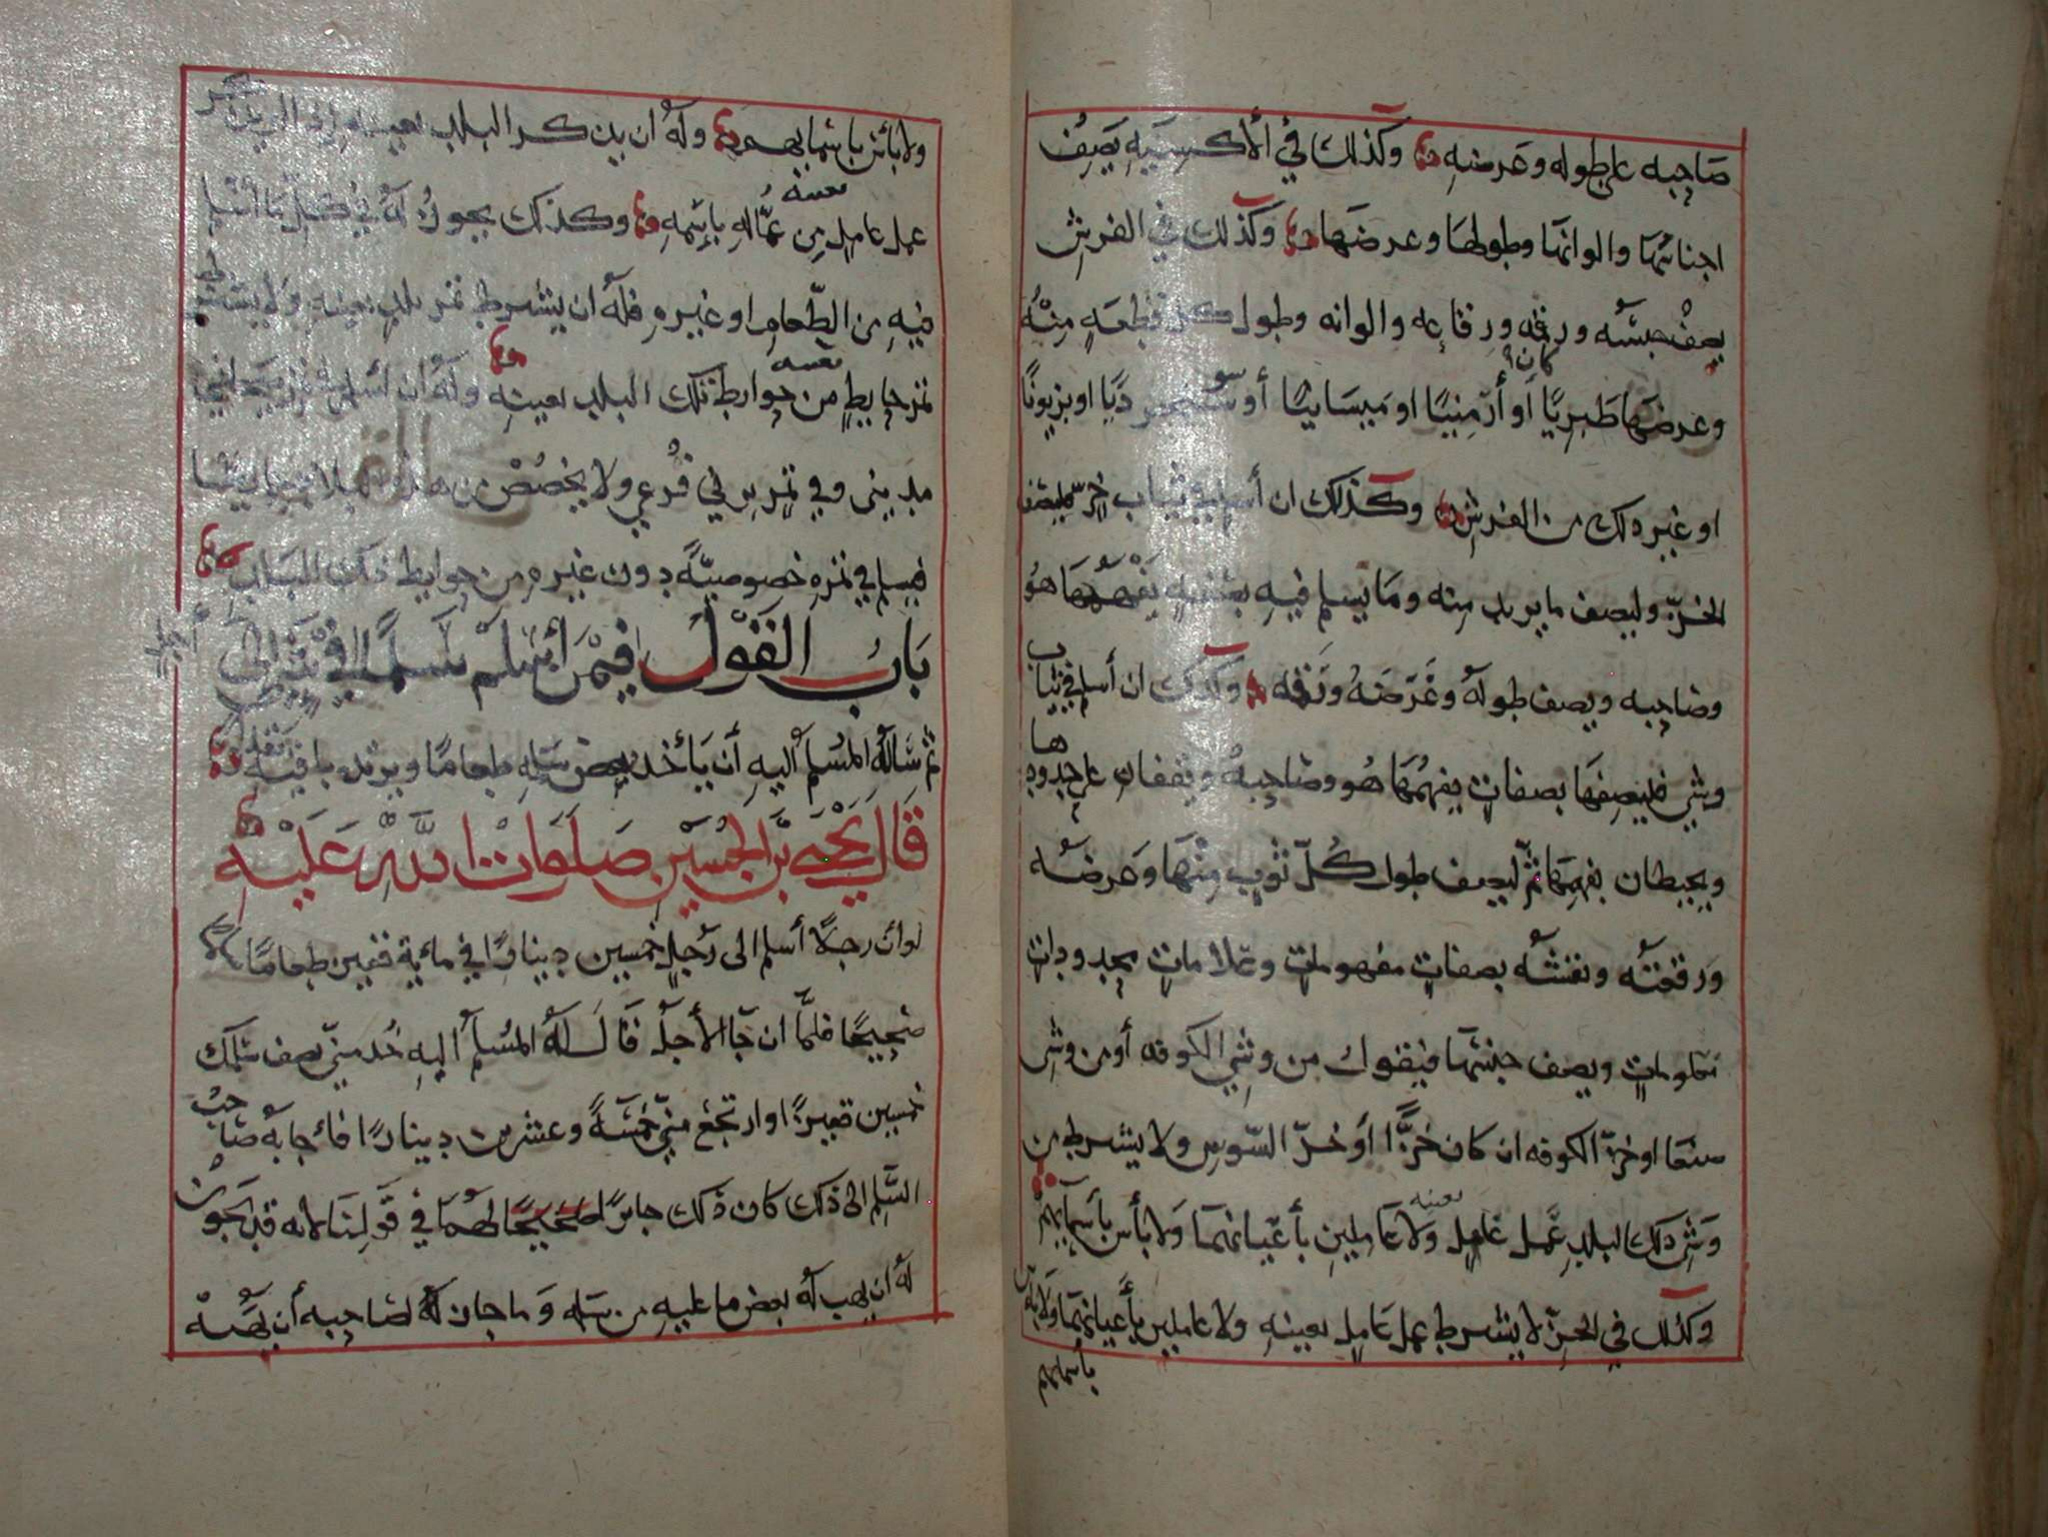 صاحبه على طوله وعرضه وكذلك في الأكسيه يصف
اجناسها والوانها وطولها وعرضها وكذلك في الفرش
يصف جنسه ورقمه ورقاعه والوانه وطول كل قطعه منه
وعرضها طبريًا كان او أرمنيًا او ميسانيًا أو او بزيونًا
او غير ذلك من الفرش وكذلك ان أسلم في ثياب خز فليصف
الخز وليصف ما يريد منه وما يسلم فيه بصفه يفهمها هو
وصاحبه ويصف طوله وعرضه ان أسلم في ثياب
وشي فليصفها بصفات يفهمها هو وصاحبه ويقفان على حدودها
ويحيطان بفهمها ثم ليصف طول كل ثوب منها وعرضه
ورقعته ونقشه بصفات مفهومات وعلامات محدودات
معلومات ويصف جنسها فيقول من وشي الكوفه أو من وشي
صنعا او خز الكوفه ان كان خزًّا أو خز السوس ولا يشرط من
وشي ذلك البلد عمل عامل بعينه ولا عاملين بأعيانهما ولا بأس بأسمآئهم
وكذلك في الخز لا يشرط عمل عامل بعينه ولا عاملين بأعيانهما ولا بأس
بأسمائهم
ولا بأس باسمائهم وله ان يذكر البلد بعينه
عمل عامل من عمّاله بعينه بإسمه وكذلك يجوز له في كل ما أسلم
فيه من الطّعام او غيره فله ان يشرط تمر بلد بعينه ولا يشرط
تمر حايط بعينه من حوايط ذلك البلد بعينه وله ان اسلم في تمر
مديني وفي تمر فرعي ولا يخصص من
فيسلم في تمره خصوصيّة دون غيره من حوايط ذلك البلد
باب القول فيمن أسلم سلمًا في شي إلى أجل
ثم سأله المسلم اليه أن يأخذ بعض سلمه طعامًا ويرتد باقيه نقدًا
قال يحيى بن الحسين صلوات الله عليه
لو أن رجلًا أسلم الى رجل خمسين دينارًا في مائة قفيز طعامًا سلمًا
صحيحًا فلمّا ان جا الأجل قال له المسلم اليه خذ منّي نصف سلمك
خمسين قفيزًا وارتجع منّي خمسةً وعشرين دينارًا فأجابه صاحب
السلم الى ذلك كان ذلك جائزًا صحيحًا لهما في قولنا لانه قد يجوز
له ان يهب له بعض ما عليه من سلمه وما جاز له لصاحبه أن يهبه